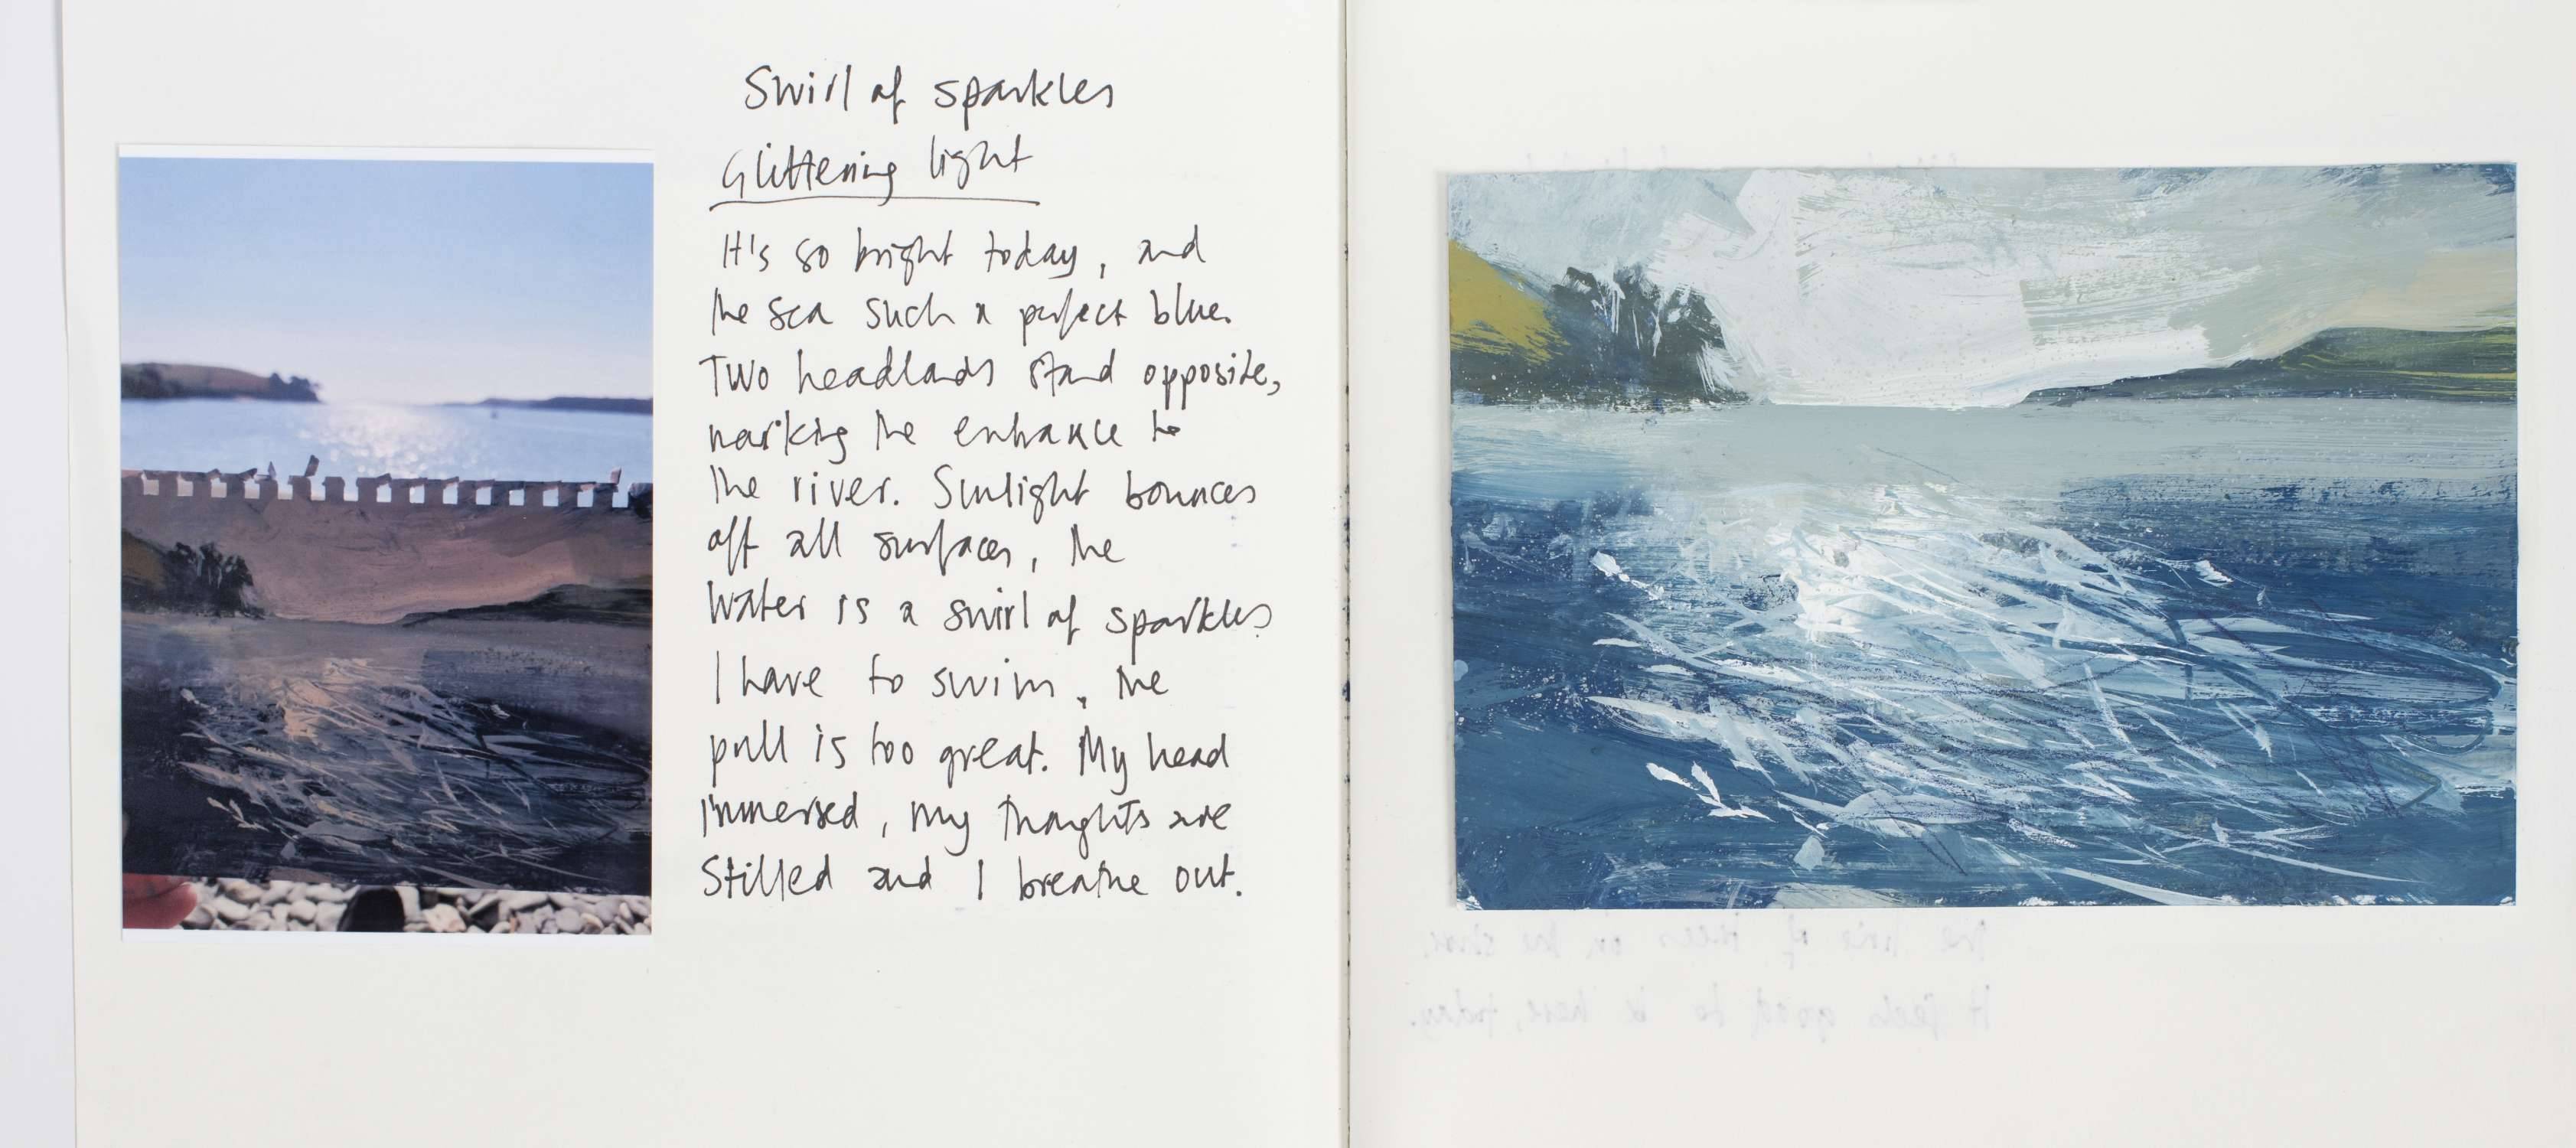 Swirl of sparkles
Glittering light
It's so bright today, and
the sea such a perfect blue.
Two headlands stand opposite,
marking the entrance to
the river. Sunlight bounces
off all surfaces, the
water is a swirl of sparkles.
I have to swim, the
pull is too great. My head
immersed, my thoughts are
stilled and I breathe out.
the line of trees on the shore.
It feels good to be here, today.